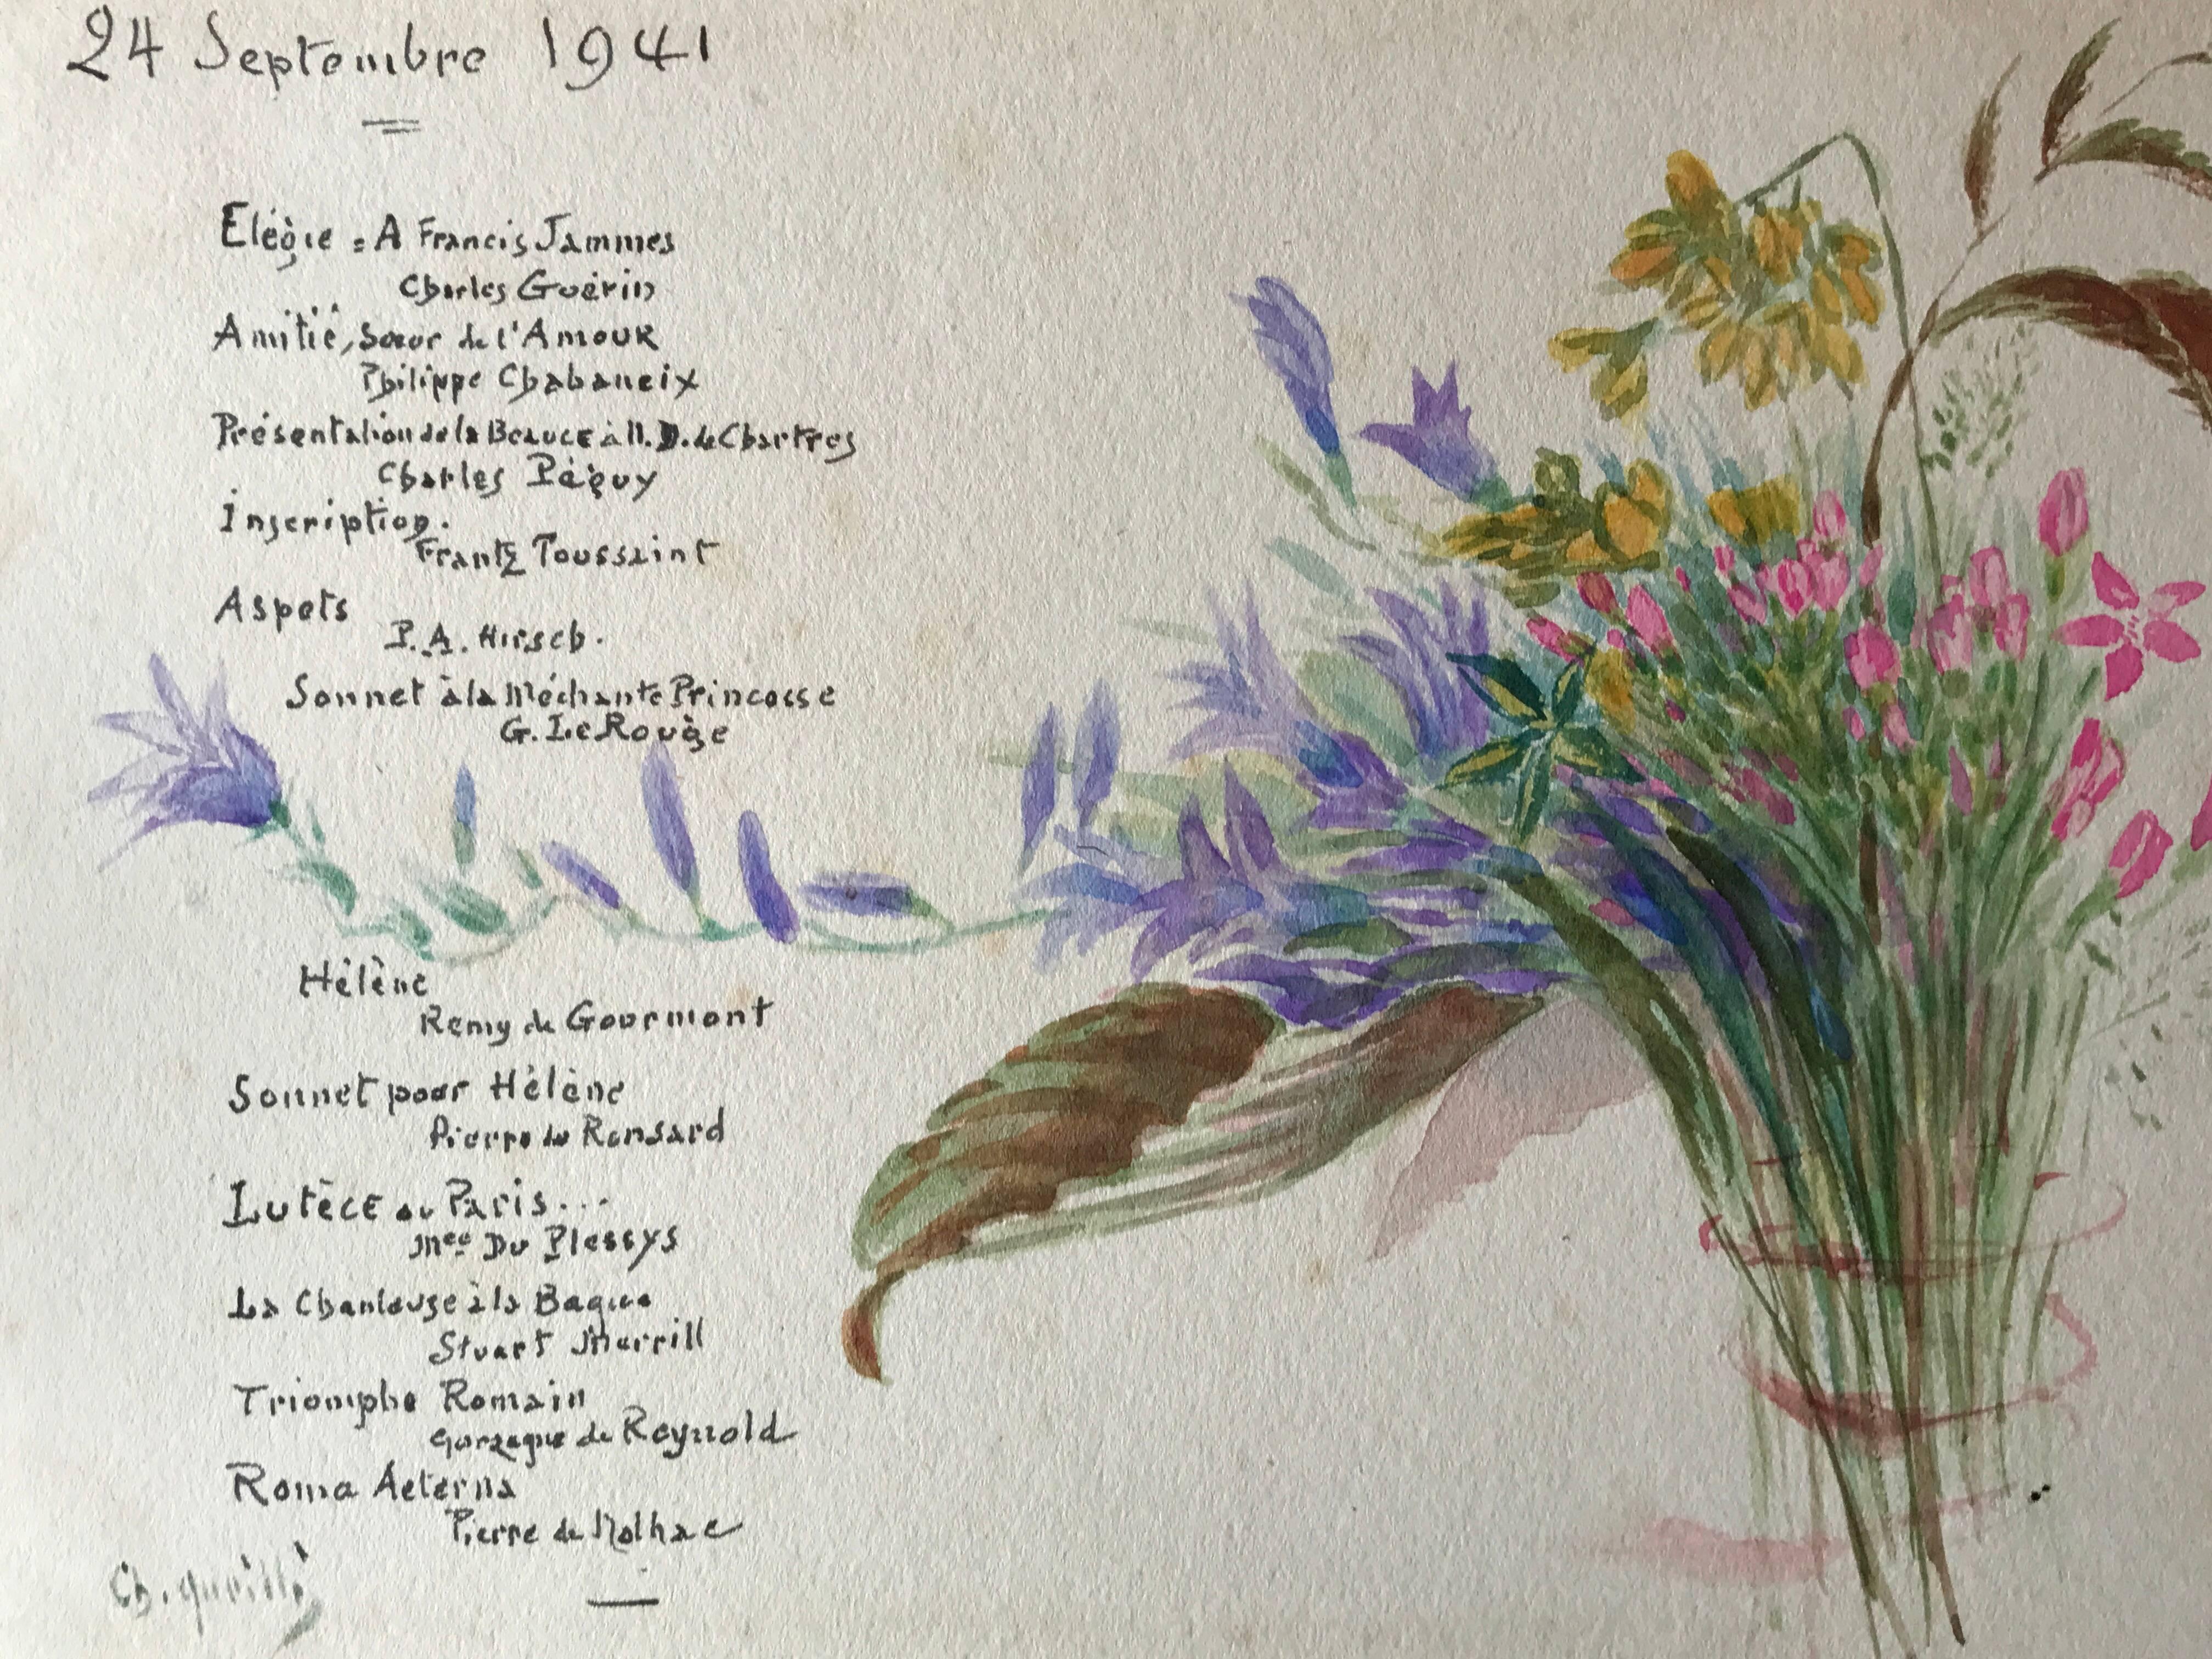 24 Septembre 1941
Elégie = A Francis Jammes
Charles Guérin
Amitié, Sœur de l'Amour
Philippe Chabaneix
Présentation de la Beauce à N. D. de Chartres
Charles Péguy
Inscription.
Frantz Toussaint
Aspets
P. A. Hirsch.
Sonnet à la Méchante Princesse
G. Le Rouge
Hélène
Remy de Gourmont
Sonnet pour Hélène
Pierre de Ronsard
Lutèce ou Paris...
Mce Du Plessys
La Chanteuse à la Bague
Stuart Merrill
Triomphe Romain
Gonzague de Reynold
Roma Aeterna
Pierre de Nolhac
Ch.